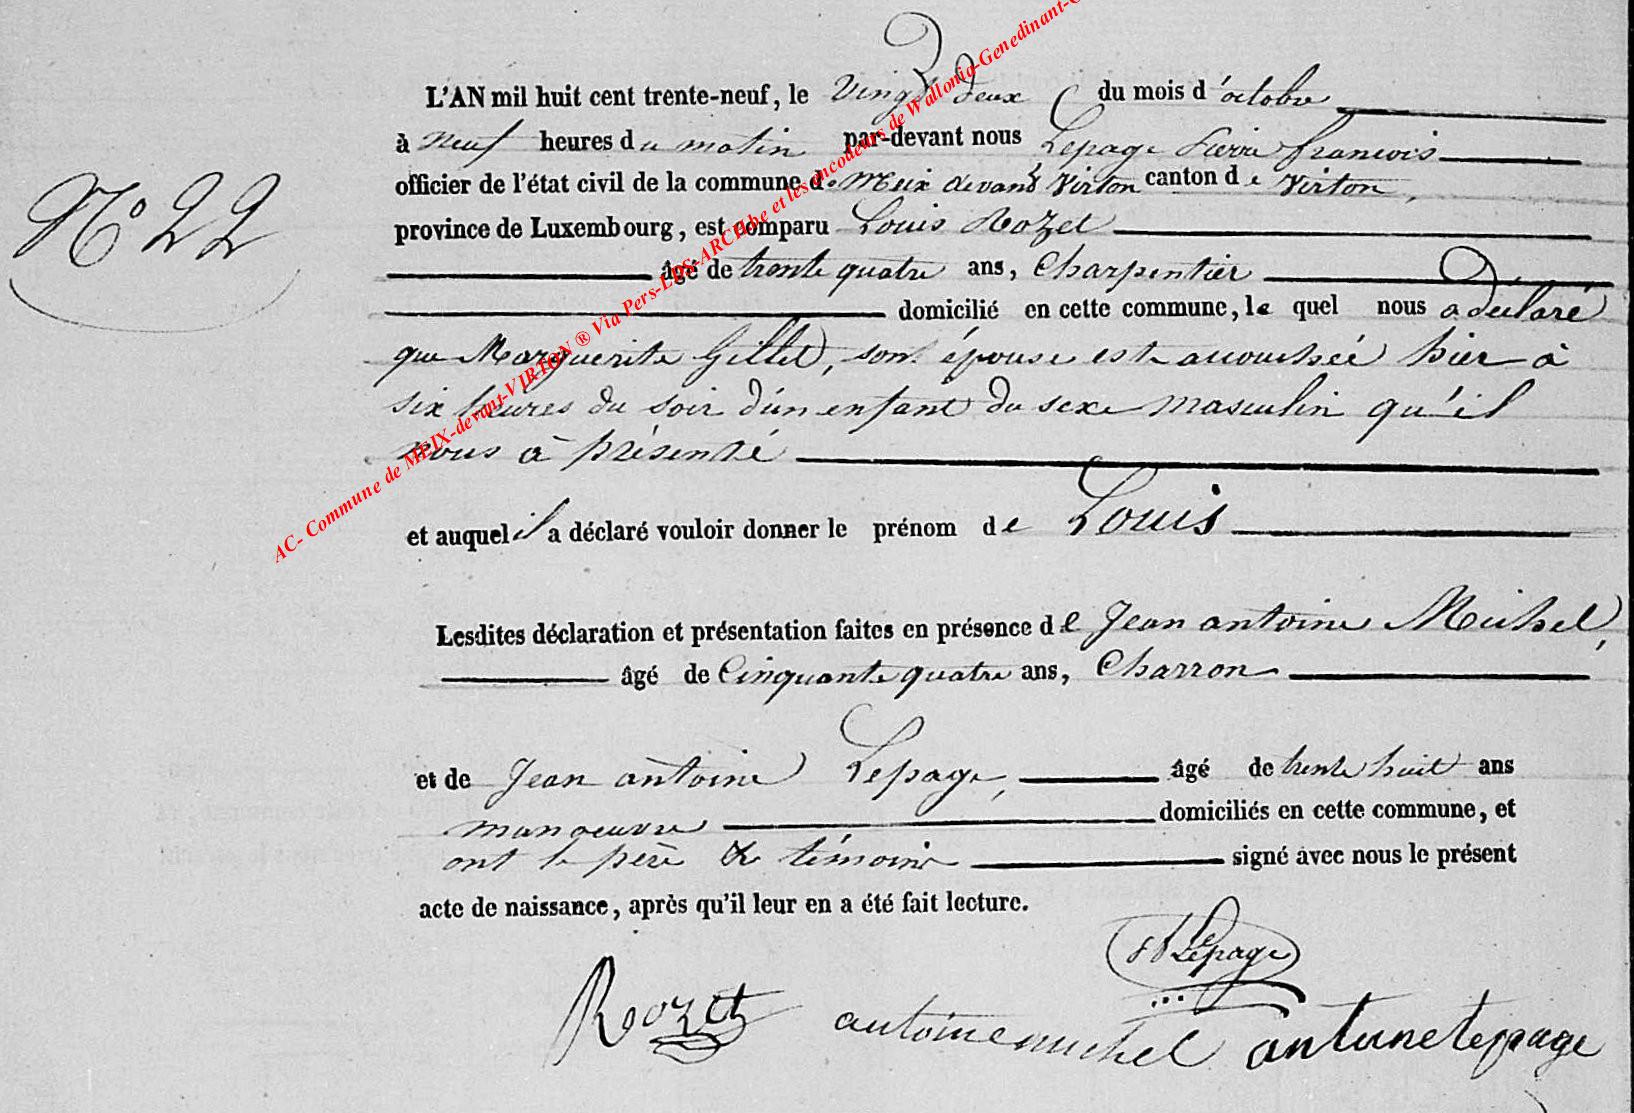 L'AN mil huit cent trente-neuf, le Vingt deux du mois d'octobre
à Neuf heures du matin par-devant nous Lepage Pierre francois
officier de l'état civil de la commune de Meix devant Virton canton de Virton,
province de Luxembourg, est comparu Louis Rozet
âgé de trente quatre ans, Charpentier
N° 22
domicilié en cette commune, le quel nous a déclaré
que Marguerite Gillet, son épouse est accouchée hier à
six heures du soir d'un enfant du sexe masculin qu'il
nous à présenté
et auquel il a déclaré vouloir donner le prénom de Louis
Lesdites déclaration et présentation faites en présence de Jean antoine Michel,
âgé de Cinquante quatre ans, Charron
et de Jean antoine Lepage, âgé de trente huit ans
manoeuvre domiciliés en cette commune, et
ont le père & témoins signé avec nous le présent
acte de naissance, après qu'il leur en a été fait lecture.
Lepage
Rozet antoine michel antune lepage
AC- Commune de MEIX-devant-VIRTON ® Via Pers-LES-ARCH.be et les encodeurs de Wallonia-Genedinant-